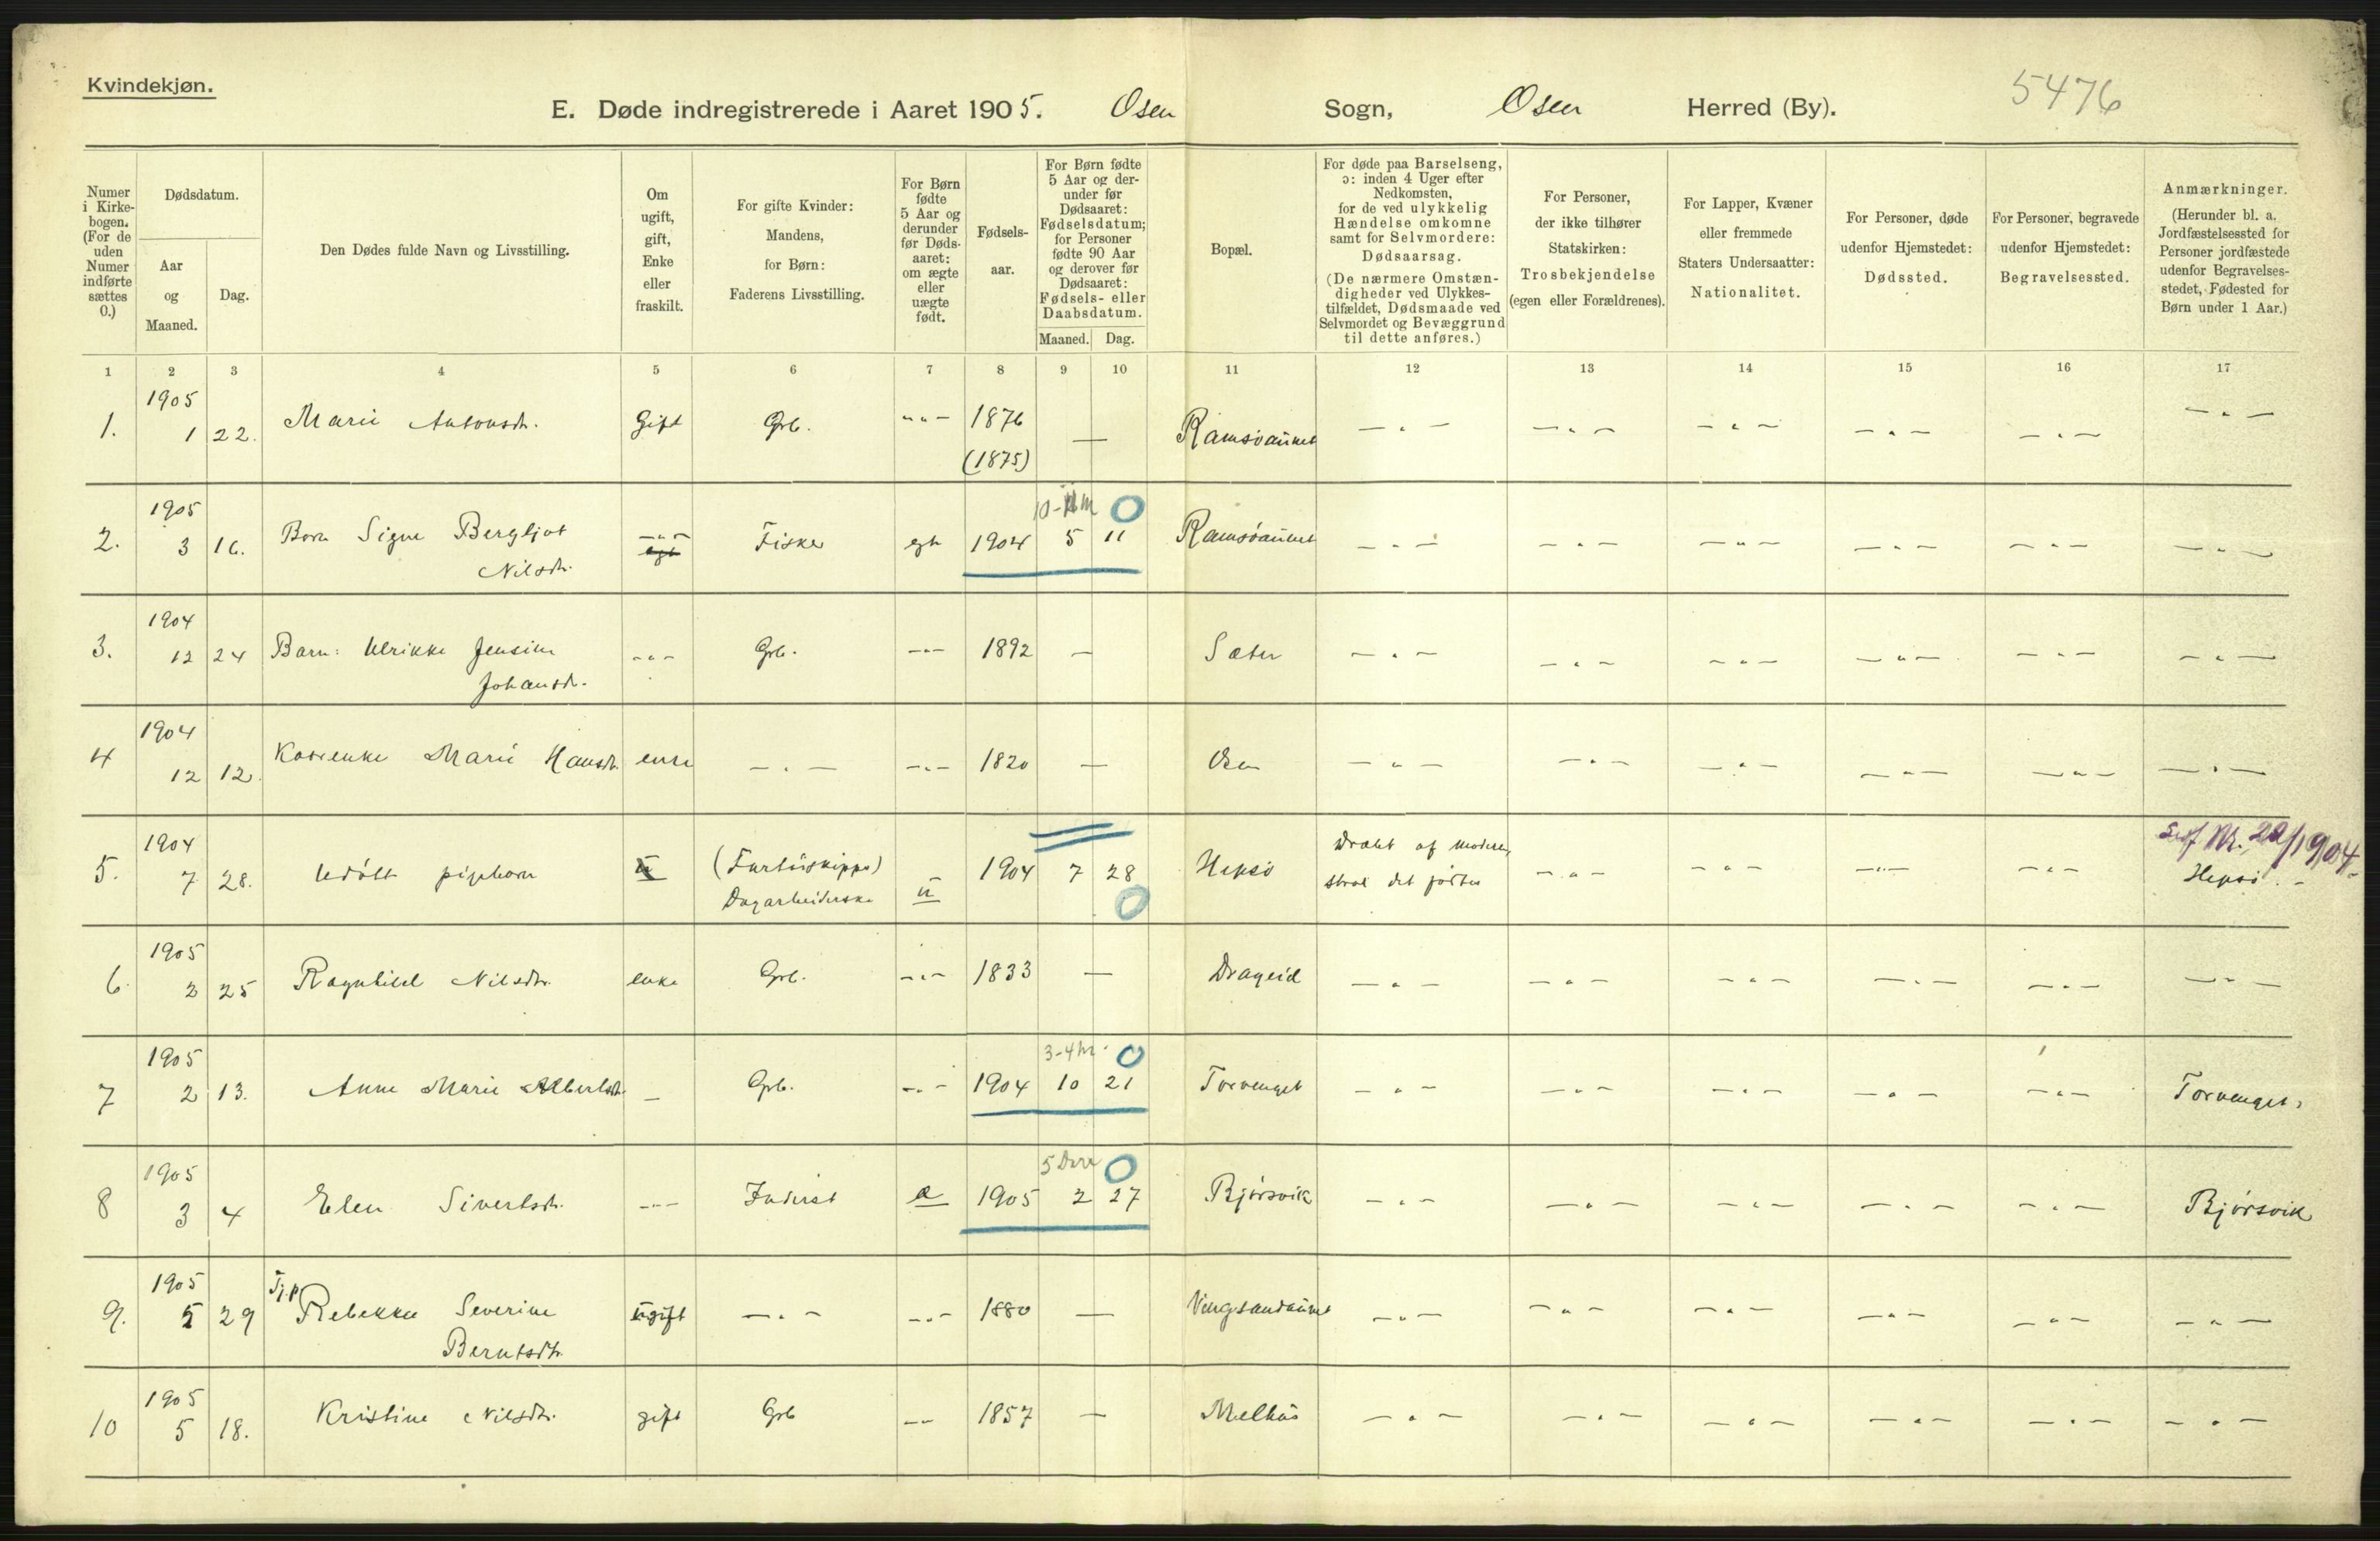 Kvindekjøn.
E. Døde indregistrerede i Aaret 1905. Osen Sogn, Osen Herred (By). 5476
Numer i Kirkebogen. (For de uden Numer indførte sættes 0.)
Dødsdatum.
Aar og Maaned.
Dag.
Den Dødes fulde Navn og Livsstilling.
Om ugift, gift, Enke eller fraskilt.
For gifte Kvinder: Mandens, for Børn: Faderens Livsstilling.
For Børn fødte 5 Aar og derunder før Dødsaaret: om ægte eller uægte født.
Fødselsaar.
For Børn fødte 5 Aar og derunder før Dødsaaret: Fødselsdatum; for Personer fødte 90 Aar og derover før Dødsaaret: Fødsels- eller Daabsdatum.
Maaned. Dag.
Bopæl.
For døde paa Barselseng, ɔ: inden 4 Uger efter Nedkomsten, for de ved ulykkelig Hændelse omkomne samt for Selvmordere: Dødsaarsag. (De nærmere Omstændigheder ved Ulykkestilfældet, Dødsmaade ved Selvmordet og Bevæggrund til dette anføres.)
For Personer, der ikke tilhører Statskirken: Trosbekjendelse (egen eller Forældrenes).
For Lapper, Kvæner eller fremmede Staters Undersaatter: Nationalitet.
For Personer, døde udenfor Hjemstedet: Dødssted.
For Personer, begravede udenfor Hjemstedet: Begravelsessted.
Anmærkninger. (Herunder bl. a. Jordfæstelsessted for Personer jordfæstede udenfor Begravelsesstedet, Fødested for Børn under 1 Aar.)
1 2 3 4 5 6 7 8 9 10 11 12 13 14 15 16 17
1905
1. 1 22. Marie Antonsdr. Gift Grb. -"- 1876 — Ramsøaunet -"- -"- -"- -"- -"- -"-
(1875)
1905 0
2. 3 16. Barn Signe Bergljot -"- Fisker egte 1904 5 11 Ramsøaunet -"- -"- -"- -"- -"- -"-
Nilsdr.
1904
3. 12 24 Barn: Ulrikke Jensine -"- Grb. -"- 1892 — Sæter -"- -"- -"- -"- -"- -"-
Johansdr.
1904
4 12 12. Marie Hansdr. enke -"- -"- 1820 — Osen -"- -"- -"- -"- -"- -"-
1904
5. 7 28. Udøbt pigebarn u 1904 7 28 Hepsø -"- -"- -"- -"-
Dræbt af moderen,
strax det fødtes
Dagarbeiderske u 0
Nr. 22/1904
Hepsø.
1905
6. 2 25 Ragnhild Nilsdtr. enke Grb. -"- 1833 — Drageid -"- -"- -"- -"- -"- -"-
1905 3-4 m. 0
7 2 13. Anne Marie Albertsdt. — Grb. -"- 1904 10 21 Torvenget -"- -"- -"- -"- -"- Torvenget.
1905 5 0
8 3 4 Elen Sivertsdr. -"- Inderst 1905 2 27 Bjørsvik -"- -"- -"- -"- -"- Bjørsvik
1905 Tj.p
9. 5 29 Rebekka Severine ugift -"- -"- 1880 — Vingsandaunet -"- -"- -"- -"- -"- -"-
Berntsdtr.
1905
10 5 18. Kristine Nilsdtr. gift Grb -"- 1857 — Melhus -"- -"- -"- -"- -"- -"-